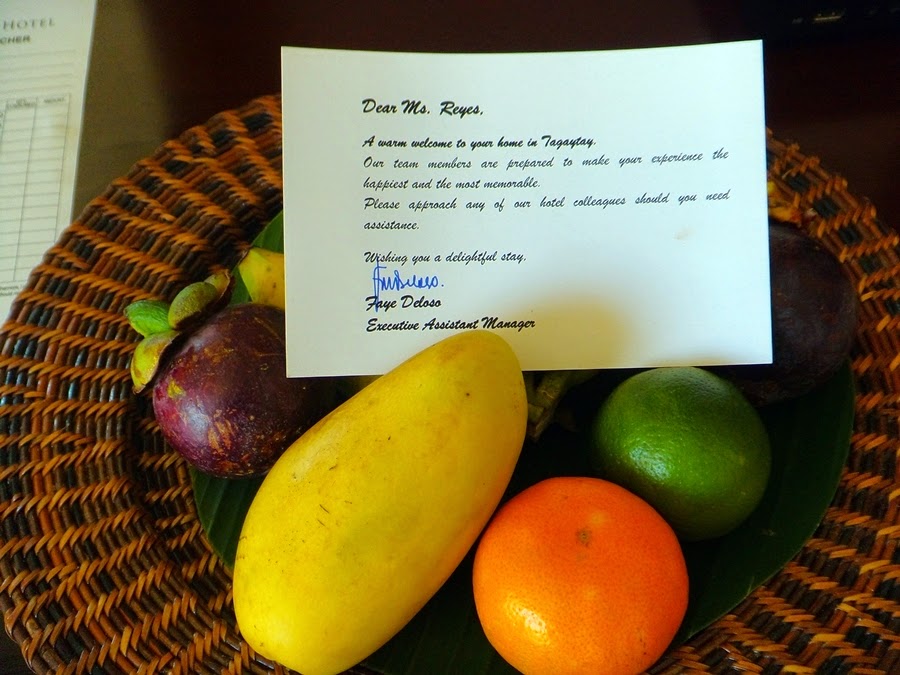 HOTEL
Dear Ms. Reyes,
A warm welcome to your home in Tagaytay.
Our team members are prepared to make your experience the
happiest and the most memorable.
Please approach any of our hotel colleagues should you need
assistance.
Wishing you a delightful stay,
Faye Deloso
Executive Assistant Manager